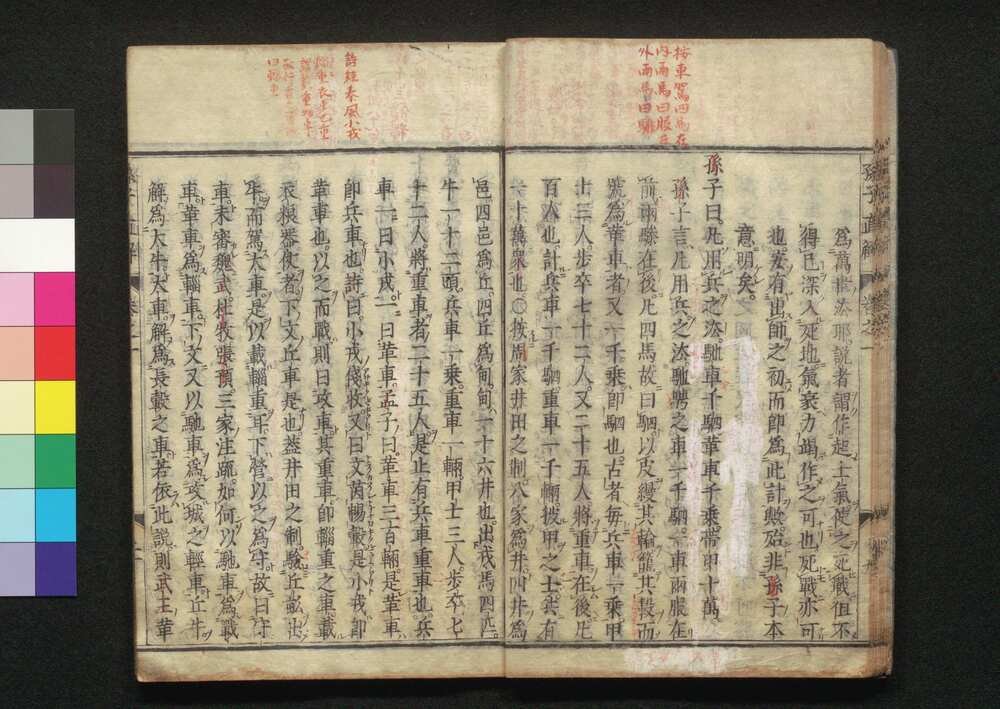 按車駕四馬在
内兩馬曰服在
外兩馬曰驂
爲萬世法耶說者謂作起士氣使之死戰但不
得已深入死地氣衰力竭作之可也死戰亦可
也安有出師之初而即爲此計歟殆非孫子本
意明矣
孫子曰凡用兵之法馳車千駟革車千乗帶甲十萬
孫子言凡用兵之法馳騁之車一千駟一車兩服在
前兩驂在後凡四馬故曰駟以皮縵其輪籠其轂而
號爲革車者又一千乗即駟也古者毎兵車一乗甲
士三人歩卒七十二人又二十五人將重車在後凡
百人也計兵車一千駟重車一千輛彼甲之士實有
一十萬衆也○按周家井田之制八家爲井四井爲
詩經秦風小戎
邑四邑爲丘四丘爲甸甸六十六井也出戎馬四匹
牛一十二頭兵車一乗重車一輛甲士三人歩卒七
十二人將重車者二十五人是止有兵車重車也兵
車一曰小戎一曰革車孟子曰革車三百輛是革車
即兵車也詩曰小戎俴收又曰文茵暢轂是小戎即
革車也以之而戰則曰攻車其重車即輜重之車載
衣糧器仗者下文丘車是也蓋井田之制驗丘畝出
牛而駕大車是以載輜重耳下營以之爲守故曰守
車未審魏武杜牧張預三家注疏如何以馳車爲戰
車革車爲輜車下文又以馳車爲攻城之輕車丘牛
解爲大牛大車解爲長轂之車若依此說則武王革